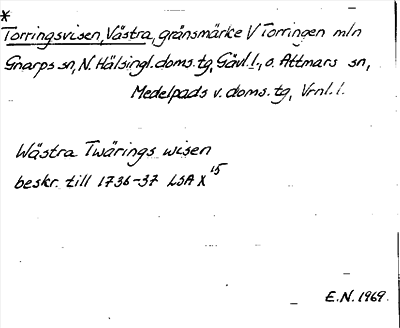 *
Torringsvisen, Västra, gränsmärke V Torringen mln
Gnarps sn, N. Hälsingl. doms. tg, Gävl. l., o. Attmars sn,
Medelpads v. doms. tg, Vrnl. l.
Wästra Twärings wisen
beskr. till 1736-37 LSA X 15
E.N. 1969.